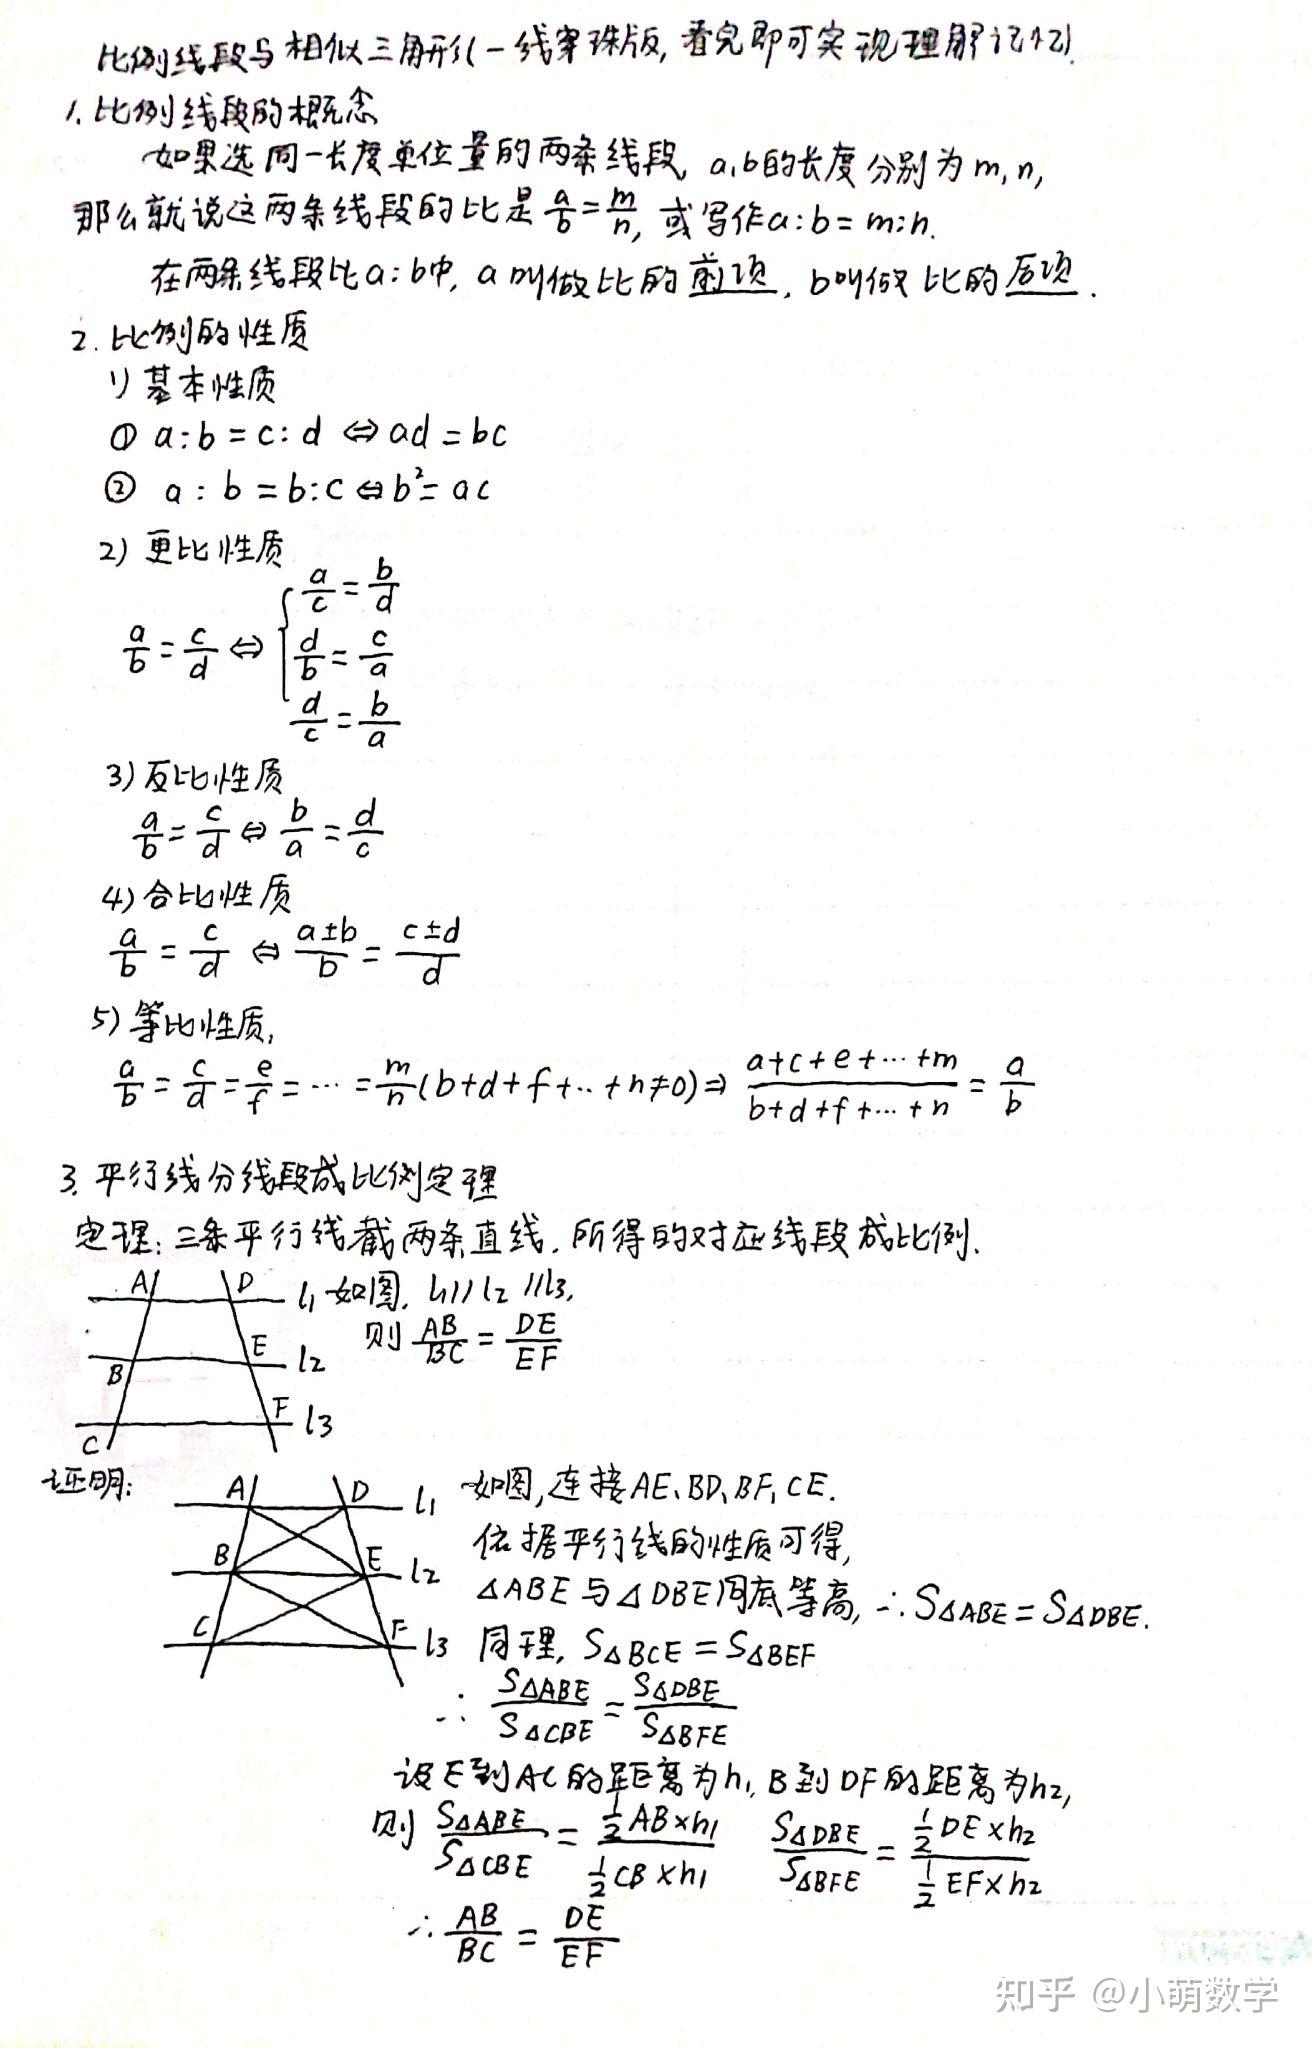 比例线段与相似三角形(一线穿珠版,看完即可实现理解记忆)
1.比例线段的概念
如果选同一长度单位量的两条线段 a,b的长度分别为m,n,
那么就说这两条线段的比是a/b=m/n,或写作a:b=m:n.
在两条线段比a:b中,a叫做比的前项,b叫做比的后项.
2.比例的性质
1)基本性质
① a:b=c:d⇔ad=bc
② a:b=b:c⇔b²=ac
2)更比性质
a/b=c/d⇔{a/c=b/d
d/b=c/a
d/c=b/a
3)反比性质
a/b=c/d⇔b/a=d/c
4)合比性质
a/b=c/d⇔(a±b)/b=(c±d)/d
5)等比性质,
a/b=c/d=e/f=…=m/n(b+d+f+…+n≠0)⇒(a+c+e+…+m)/(b+d+f+…+n)=a/b
3.平行线分线段成比例定理
定理:三条平行线截两条直线,所得的对应线段成比例.
A D l1 如图,l1//l2//l3,
则AB/BC=DE/EF
B E l2
C F l3
证明:
A D l1 如图,连接AE、BD、BF、CE.
依据平行线的性质可得,
B E l2
△ABE与△DBE同底等高,∴S△ABE=S△DBE.
C F l3 同理,S△BCE=S△BEF
∴S△ABE/S△CBE=S△DBE/S△BFE
设E到AC的距离为h1,B到DF的距离为h2,
则S△ABE/S△CBE=(1/2AB×h1)/(1/2CB×h1) S△DBE/S△BFE=(1/2DE×h2)/(1/2EF×h2)
∴AB/BC=DE/EF
知乎 @小萌数学